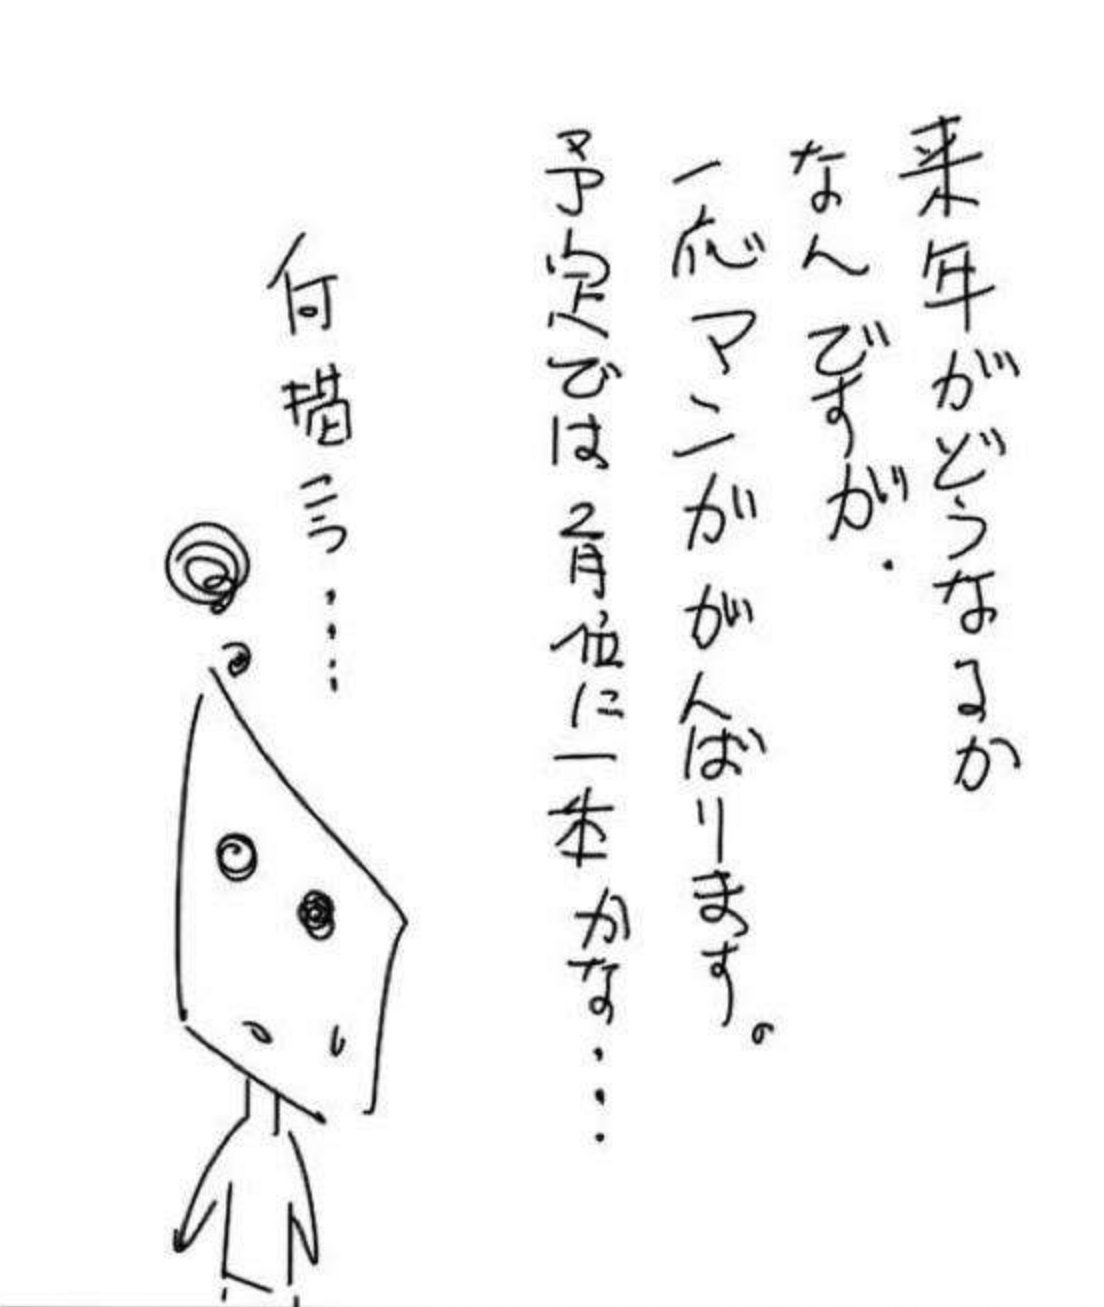 来年がどうなるか
なんですが.
一応マンガがんばります。
予定では2月位に一本かな・・・
何描こう・・・・